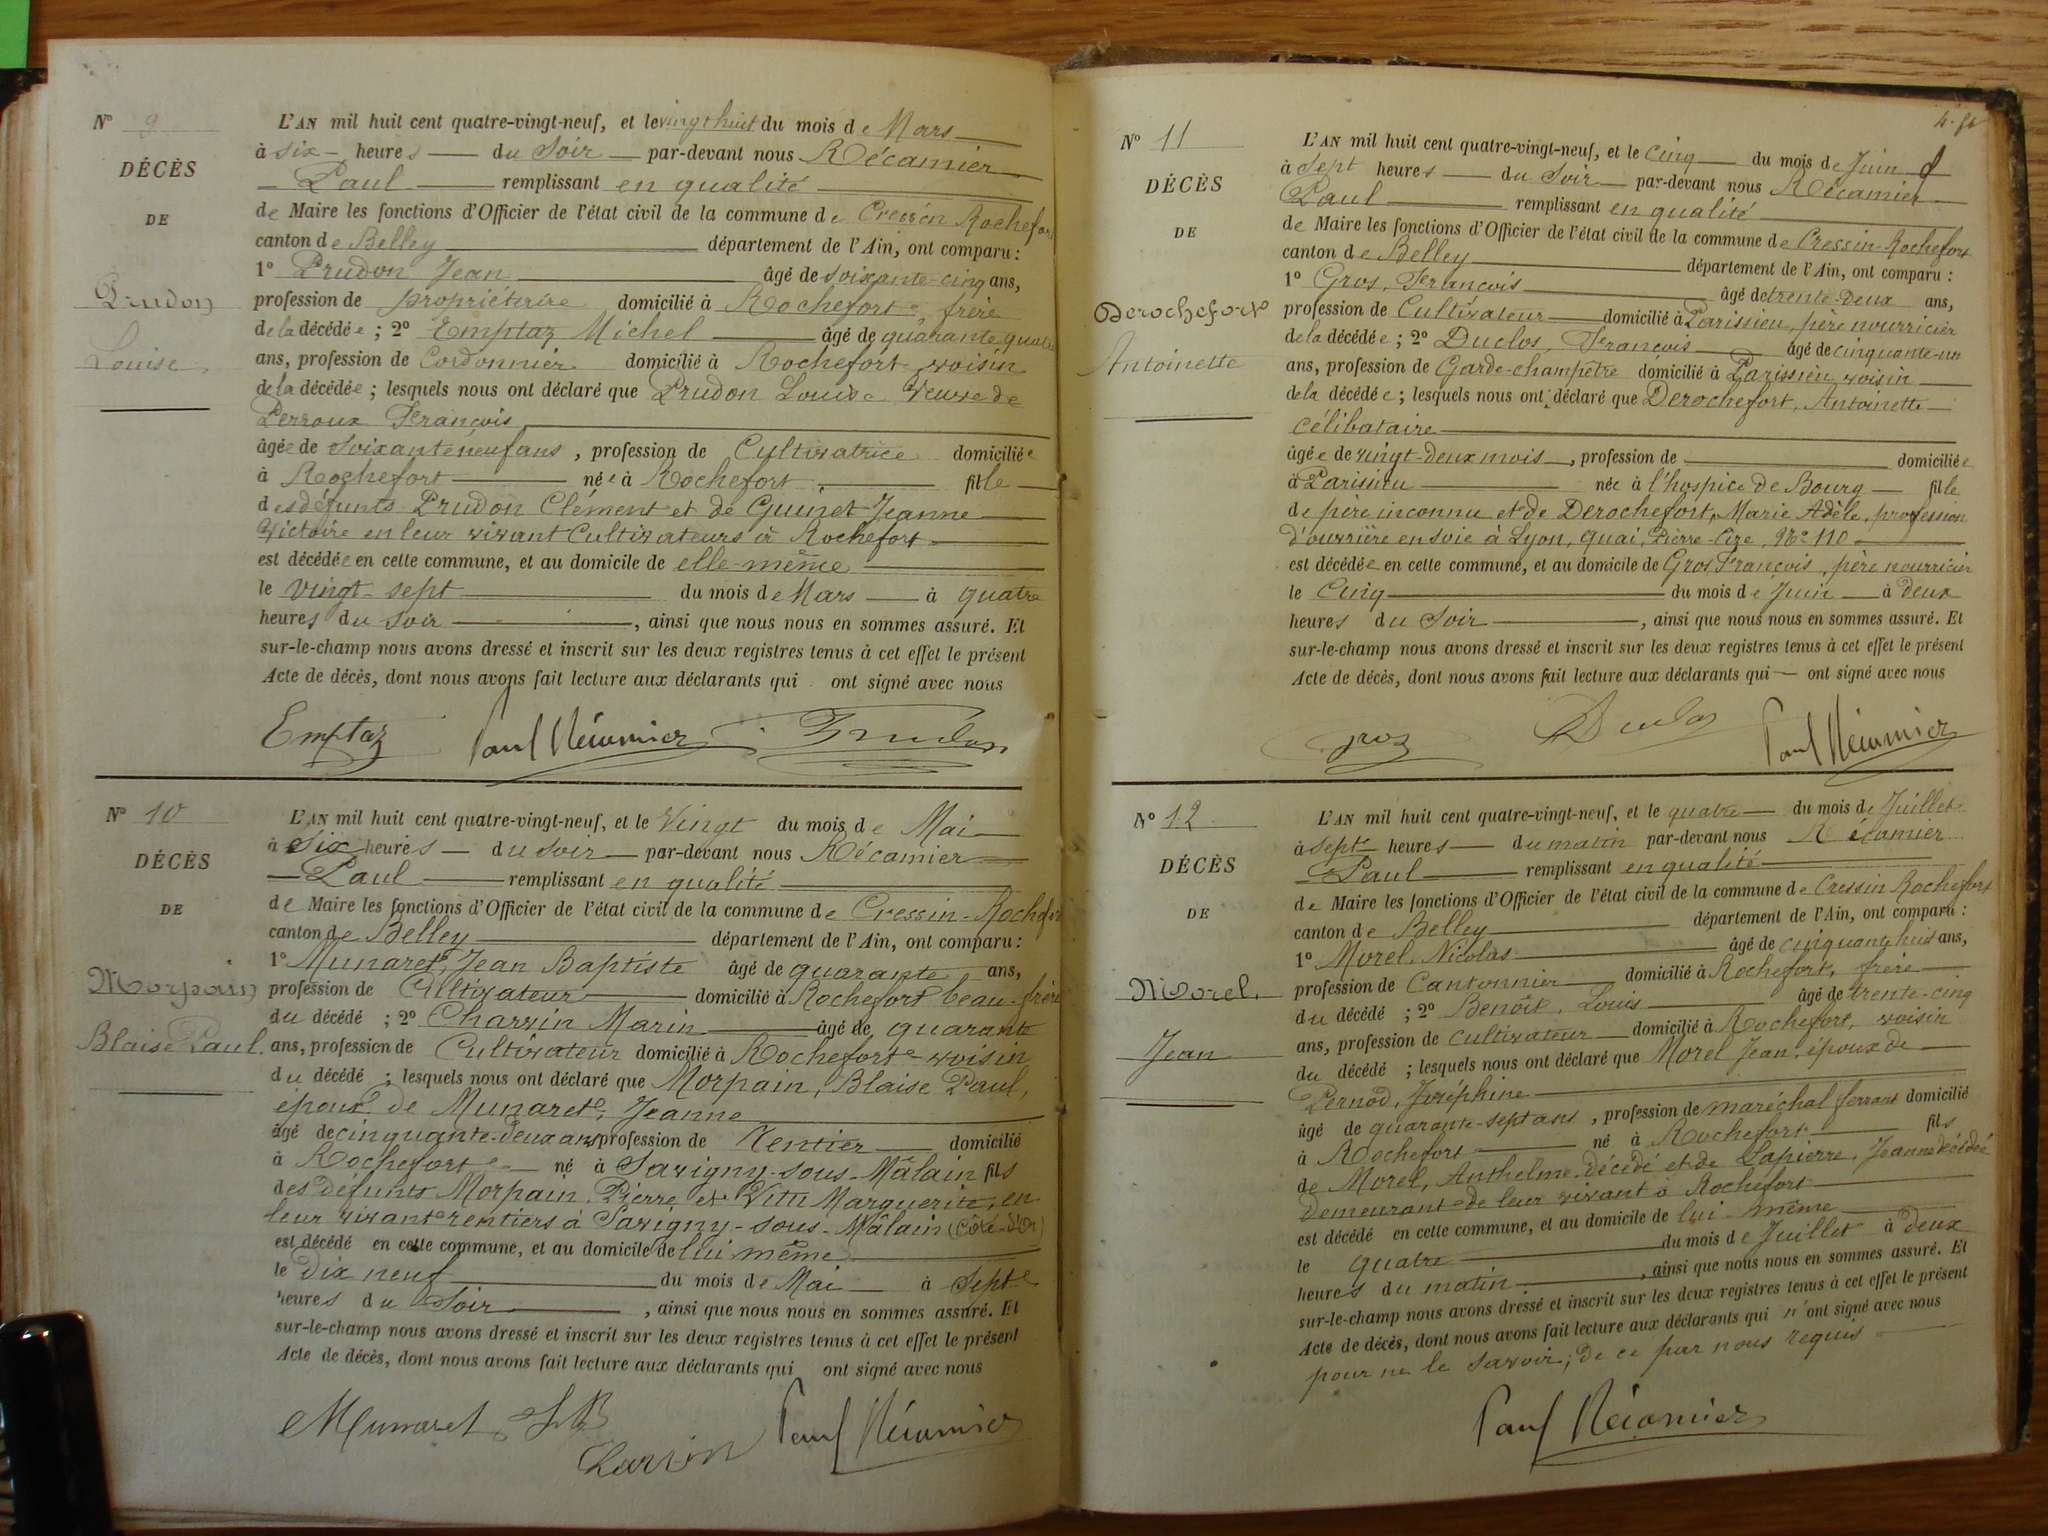 N° 9
DÉCÈS
DE
Prudon
Louise
L'AN mil huit cent quatre-vingt-neuf, et le vingt huit du mois de Mars
à six heures du Soir par-devant nous Récamier
Paul remplissant en qualité
de Maire les fonctions d'Officier de l'état civil de la commune de Cressin Rochefort
canton de Belley département de l'Ain, ont comparu :
1° Prudon Jean âgé de soixante-cinq ans,
profession de propriétaire domicilié à Rochefort, frère
de la décédée ; 2° Emptaz Michel âgé de quarante quatre
ans, profession de Cordonnier domicilié à Rochefort voisin
de la décédée ; lesquels nous ont déclaré que Prudon Louise Veuve de
Perroux François
âgée de Soixante neuf ans, profession de Cultivatrice domiciliée
à Rochefort née à Rochefort fille
des défunts Prudon Clément et de Guinet Jeanne
Victoire en leur vivant Cultivateurs à Rochefort
est décédée en cette commune, et au domicile de elle-même
le Vingt-sept du mois de Mars à quatre
heures du Soir, ainsi que nous nous en sommes assuré. Et
sur-le-champ nous avons dressé et inscrit sur les deux registres tenus à cet effet le présent
Acte de décès, dont nous avons fait lecture aux déclarants qui ont signé avec nous
Emptaz Paul Récamier Prudon
N° 10
DÉCÈS
DE
Morpain
Blaise Paul.
L'AN mil huit cent quatre-vingt-neuf, et le Vingt du mois de Mai
à Six heures du soir par-devant nous Récamier
Paul remplissant en qualité
de Maire les fonctions d'Officier de l'état civil de la commune de Cressin-Rochefort
canton de Belley département de l'Ain, ont comparu :
1° Munaret, Jean Baptiste âgé de quarante ans,
profession de Cultivateur domicilié à Rochefort beau-frère
du décédé ; 2° Charvin Marin âgé de quarante
ans, profession de Cultivateur domicilié à Rochefort voisin
du décédé ; lesquels nous ont déclaré que Morpain, Blaise Paul,
époux de Munaret, Jeanne
âgé de cinquante-deux ans profession de Rentier domicilié
à Rochefort né à Savigny-sous-Mâlain fils
des défunts Morpain Pierre et Marguerite, en
leur vivant rentiers à Savigny-sous-Mâlain (Côte-d'Or)
est décédé en cette commune, et au domicile de lui même
le Dix neuf du mois de Mai à Sept
heures du Soir, ainsi que nous nous en sommes assuré. Et
sur-le-champ nous avons dressé et inscrit sur les deux registres tenus à cet effet le présent
Acte de décès, dont nous avons fait lecture aux déclarants qui ont signé avec nous
Munaret J B
Paul Récamier
N° 11
DÉCÈS
DE
Derochefort
Antoinette
L'AN mil huit cent quatre-vingt-neuf, et le Cinq du mois de Juin
à Sept heures du Soir par-devant nous Récamier
Paul remplissant en qualité
de Maire les fonctions d'Officier de l'état civil de la commune de Cressin-Rochefort
canton de Belley département de l'Ain, ont comparu :
1° Gros, François âgé de trente-deux ans,
profession de Cultivateur domicilié à Parissieu, père nourricier
de la décédée ; 2° Duclos, François âgé de cinquante-un
ans, profession de Garde-champêtre domicilié à Parissieu voisin
de la décédée ; lesquels nous ont déclaré que Derochefort, Antoinette
Célibataire
âgée de vingt-deux mois, profession de domiciliée
à Parissieu née à l'hospice de Bourg fille
de père inconnu et de Derochefort, Marie Adèle, profession
d'ouvrière en soie à Lyon, quai, Pierre-Cize, N° 110
est décédée en cette commune, et au domicile de Gros François, père nourricier
le Cinq du mois de Juin à Deux
heures du Soir, ainsi que nous nous en sommes assuré. Et
sur-le-champ nous avons dressé et inscrit sur les deux registres tenus à cet effet le présent
Acte de décès, dont nous avons fait lecture aux déclarants qui ont signé avec nous
groz Duclos Paul Récamier
N° 12
DÉCÈS
DE
Morel
Jean
L'AN mil huit cent quatre-vingt-neuf, et le quatre du mois de Juillet
à sept heures du matin par-devant nous Récamier
Paul remplissant en qualité
de Maire les fonctions d'Officier de l'état civil de la commune de Cressin Rochefort
canton de Belley département de l'Ain, ont comparu :
1° Morel Nicolas âgé de cinquante huit ans,
profession de Cantonnier domicilié à Rochefort, frère
du décédé ; 2° Benoît, Louis âgé de trente-cinq
ans, profession de cultivateur domicilié à Rochefort, voisin
du décédé ; lesquels nous ont déclaré que Morel Jean, époux de
Pernod, Joséphine
âgé de quarante-sept ans, profession de maréchal ferrant domicilié
à Rochefort né à Rochefort fils
de Morel, Anthelme décédé et de Lapierre, Jeanne décédée
demeurant de leur vivant à Rochefort
est décédé en cette commune, et au domicile de lui-même
le quatre du mois de Juillet à deux
heures du matin, ainsi que nous nous en sommes assuré. Et
sur-le-champ nous avons dressé et inscrit sur les deux registres tenus à cet effet le présent
Acte de décès, dont nous avons fait lecture aux déclarants qui n'ont signé avec nous
pour ne le savoir; de ce par nous requis
Paul Récamier